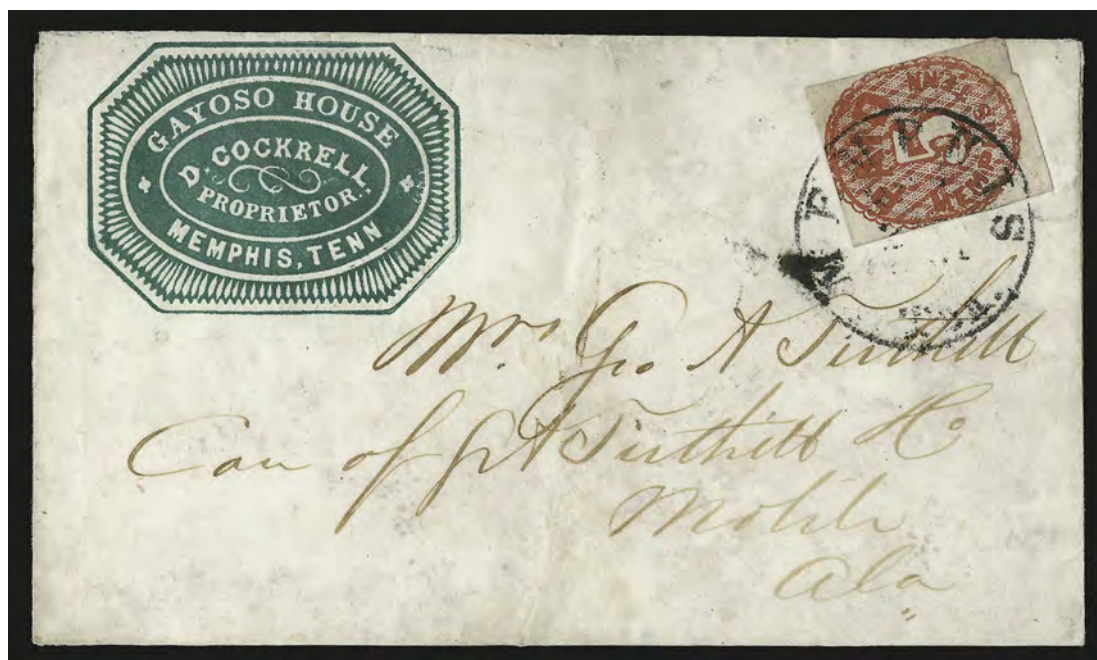 GAYOSO HOUSE
D. COCKRELL
PROPRIETOR,
MEMPHIS, TENN
MEMPHIS
Mrs. Geo A Tuthill
Care of A Tuthill
Mobile
Ala